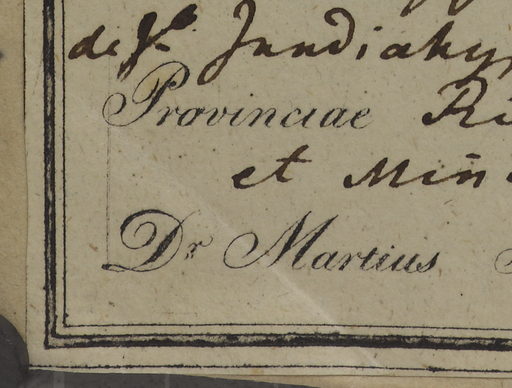 de Jundiahy,
Provinciae Ri
et Min
Dr Martius